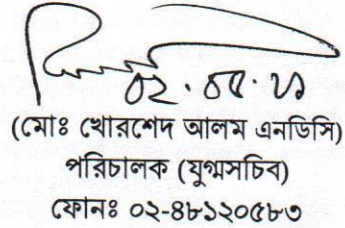 ০২.০৫.২১
(মোঃ খোরশেদ আলম এনডিসি)
পরিচালক (যুগ্মসচিব)
ফোনঃ ০২-৪৮১২০৫৮৩